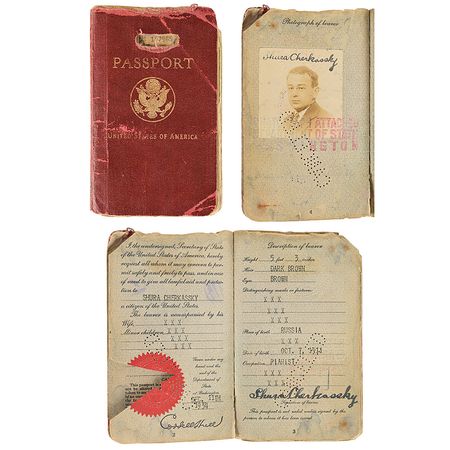 PASSPORT
UNITED STATES OF AMERICA
Photograph of bearer
Shura Cherkassky
ATTACHED
T OF STATE
NGTON
4
I, the undersigned, Secretary of State
of the United States of America, hereby
request all whom it may concern to per-
mit safely and freely to pass, and in case
of need to give all lawful aid and protec-
tion to
SHURA CHERKASSKY
a citizen of the United States.
The bearer is accompanied by his
Wife, XXX
Minor children, XXX
XXX
XXX
Given under my
hand and the
seal of the
Department of
State
at Washington,
Cordell Hull
2
Description of bearer
Height 5 feet 3 inches
Hair DARK BROWN
Eyes BROWN
Distinguishing marks or features:
XXX
XXX
XXX
Place of birth RUSSIA
Date of birth OCT. 7,
Occupation PIANIST
XXX
XXX
Shura Cherkassky
Signature of bearer
This passport is not valid unless signed by the
person to whom it has been issued.
3